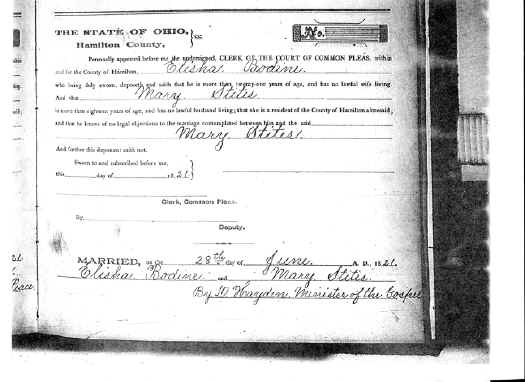 THE STATE OF OHIO, } SS:
Hamilton County.
No.
Personally appeared before me the undersigned, CLERK OF THE COURT OF COMMON PLEAS, within
and for the County of Hamilton, Elisha Bodine.
who being duly sworn, deposeth and saith that he is more than twenty-one years of age, and has no lawful wife living
And that Mary Stites
is more than eighteen years of age, and has no lawful husband living; that she is a resident of the County of Hamilton aforesaid,
and that he knows of no legal objections to the marriage contemplated between him and the said
Mary Stites.
And further this deponent saith not.
Sworn to and subscribed before me,
this day of 1821. }
Clerk, Common Pleas.
By
Deputy.
MARRIED, on the 28th day of June. A. D. 1821.
Elisha Bodine and Mary Stites.
By Hayden, Minister of the Gospel
21.
Peace